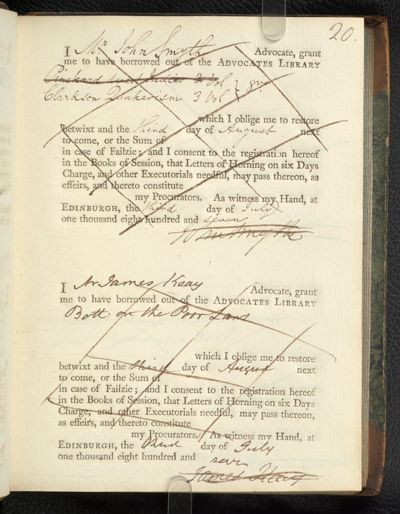 20.
I Mr John Smyth Advocate, grant
me to have borrowed out of the ADVOCATES LIBRARY
Pinckard West Indies 3 Vol
Clarkson Quakerism 3 Vol
which I oblige me to restore
betwixt and the third day of August next
to come, or the Sum of
in case of Failzie; and I consent to the registration hereof
in the Books of Session, that Letters of Horning on six Days
Charge, and other Executorials needful, may pass thereon, as
effeirs, and thereto constitute
my Procurators. As witness my Hand, at
EDINBURGH, the third day of July
one thousand eight hundred and seven
John Smyth
I Mr James Keay Advocate, grant
me to have borrowed out of the ADVOCATES LIBRARY
Bott on the Poor Laws
which I oblige me to restore
betwixt and the third day of August next
to come, or the Sum of
in case of Failzie; and I consent to the registration hereof
in the Books of Session, that Letters of Horning on six Days
Charge, and other Executorials needful, may pass thereon,
as effeirs, and thereto constitute
my Procurators. As witness my Hand, at
EDINBURGH, the third day of July
one thousand eight hundred and seven
James Keay